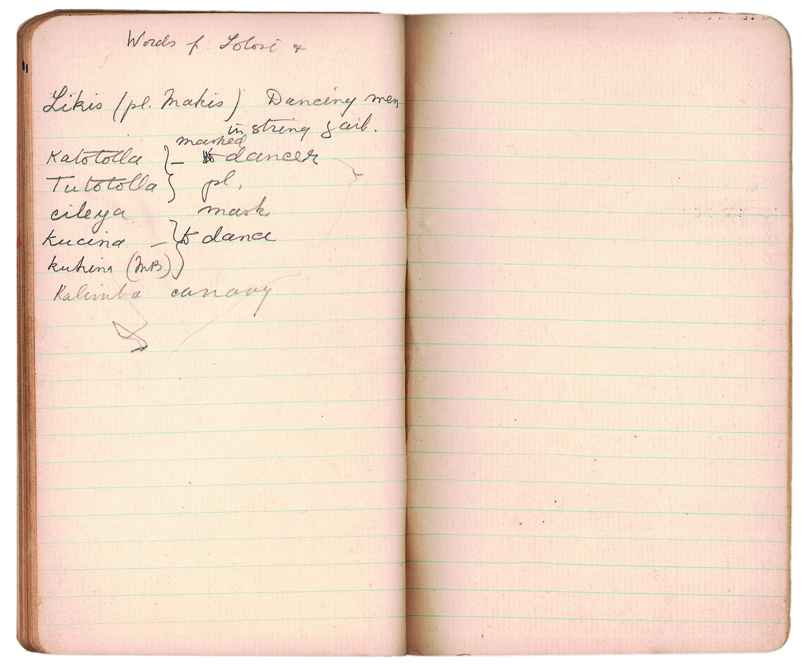 Words f. Lotosi &
Likis (pl. Makis) Dancing men
in string garb.
masked
Katotolla } – dancer
Tutotolla } pl.
cileya mask
kucina – } to dance
kuhina (MB) }
Kalimba canary